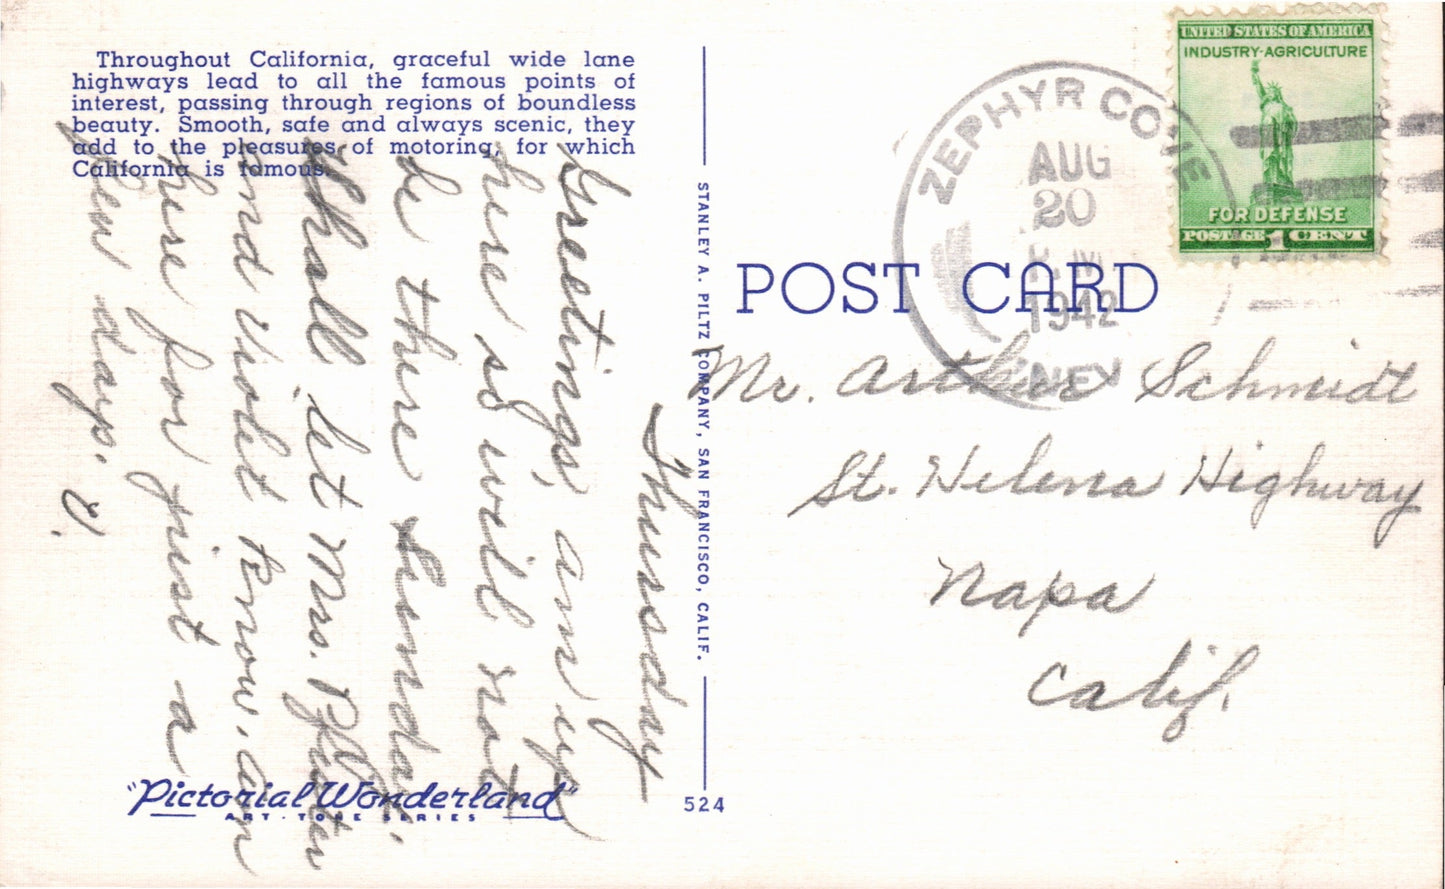 Throughout California, graceful wide lane
highways lead to all the famous points of
interest, passing through regions of boundless
beauty. Smooth, safe and always scenic, they
add to the pleasures of motoring, for which
California is famous.
Thursday
Greetings, am up
here so will not
be there Sunday.
Shall let Mrs.
and Violet know, am
here for just a
few days.
V.
"Pictorial Wonderland"
ART-TONE SERIES
STANLEY A. PILTZ COMPANY, SAN FRANCISCO, CALIF.
524
POST CARD
ZEPHYR COVE
AUG
20
P.M.
1942
NEV
UNITED STATES OF AMERICA
INDUSTRY-AGRICULTURE
FOR DEFENSE
POSTAGE 1 CENT
Mr. Arthur Schmidt
St. Helena Highway
Napa
Calif.